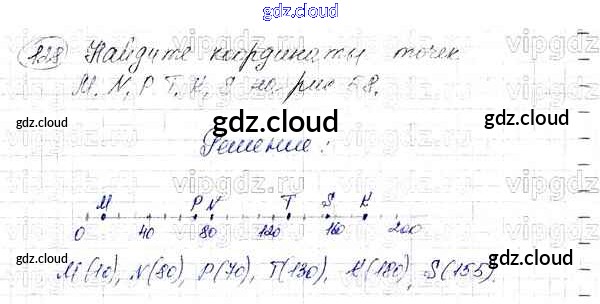 gdz.cloud
128 Найдите координаты точек
M, N, P, T, K, S на рис 58.
gdz.cloud gdz.cloud
Решение:
M P N T S K
0 40 80 120 160 200
M(10), N(80), P(70), T(130), K(180), S(155).
gdz.cloud gdz.cloud
gdz.cloud